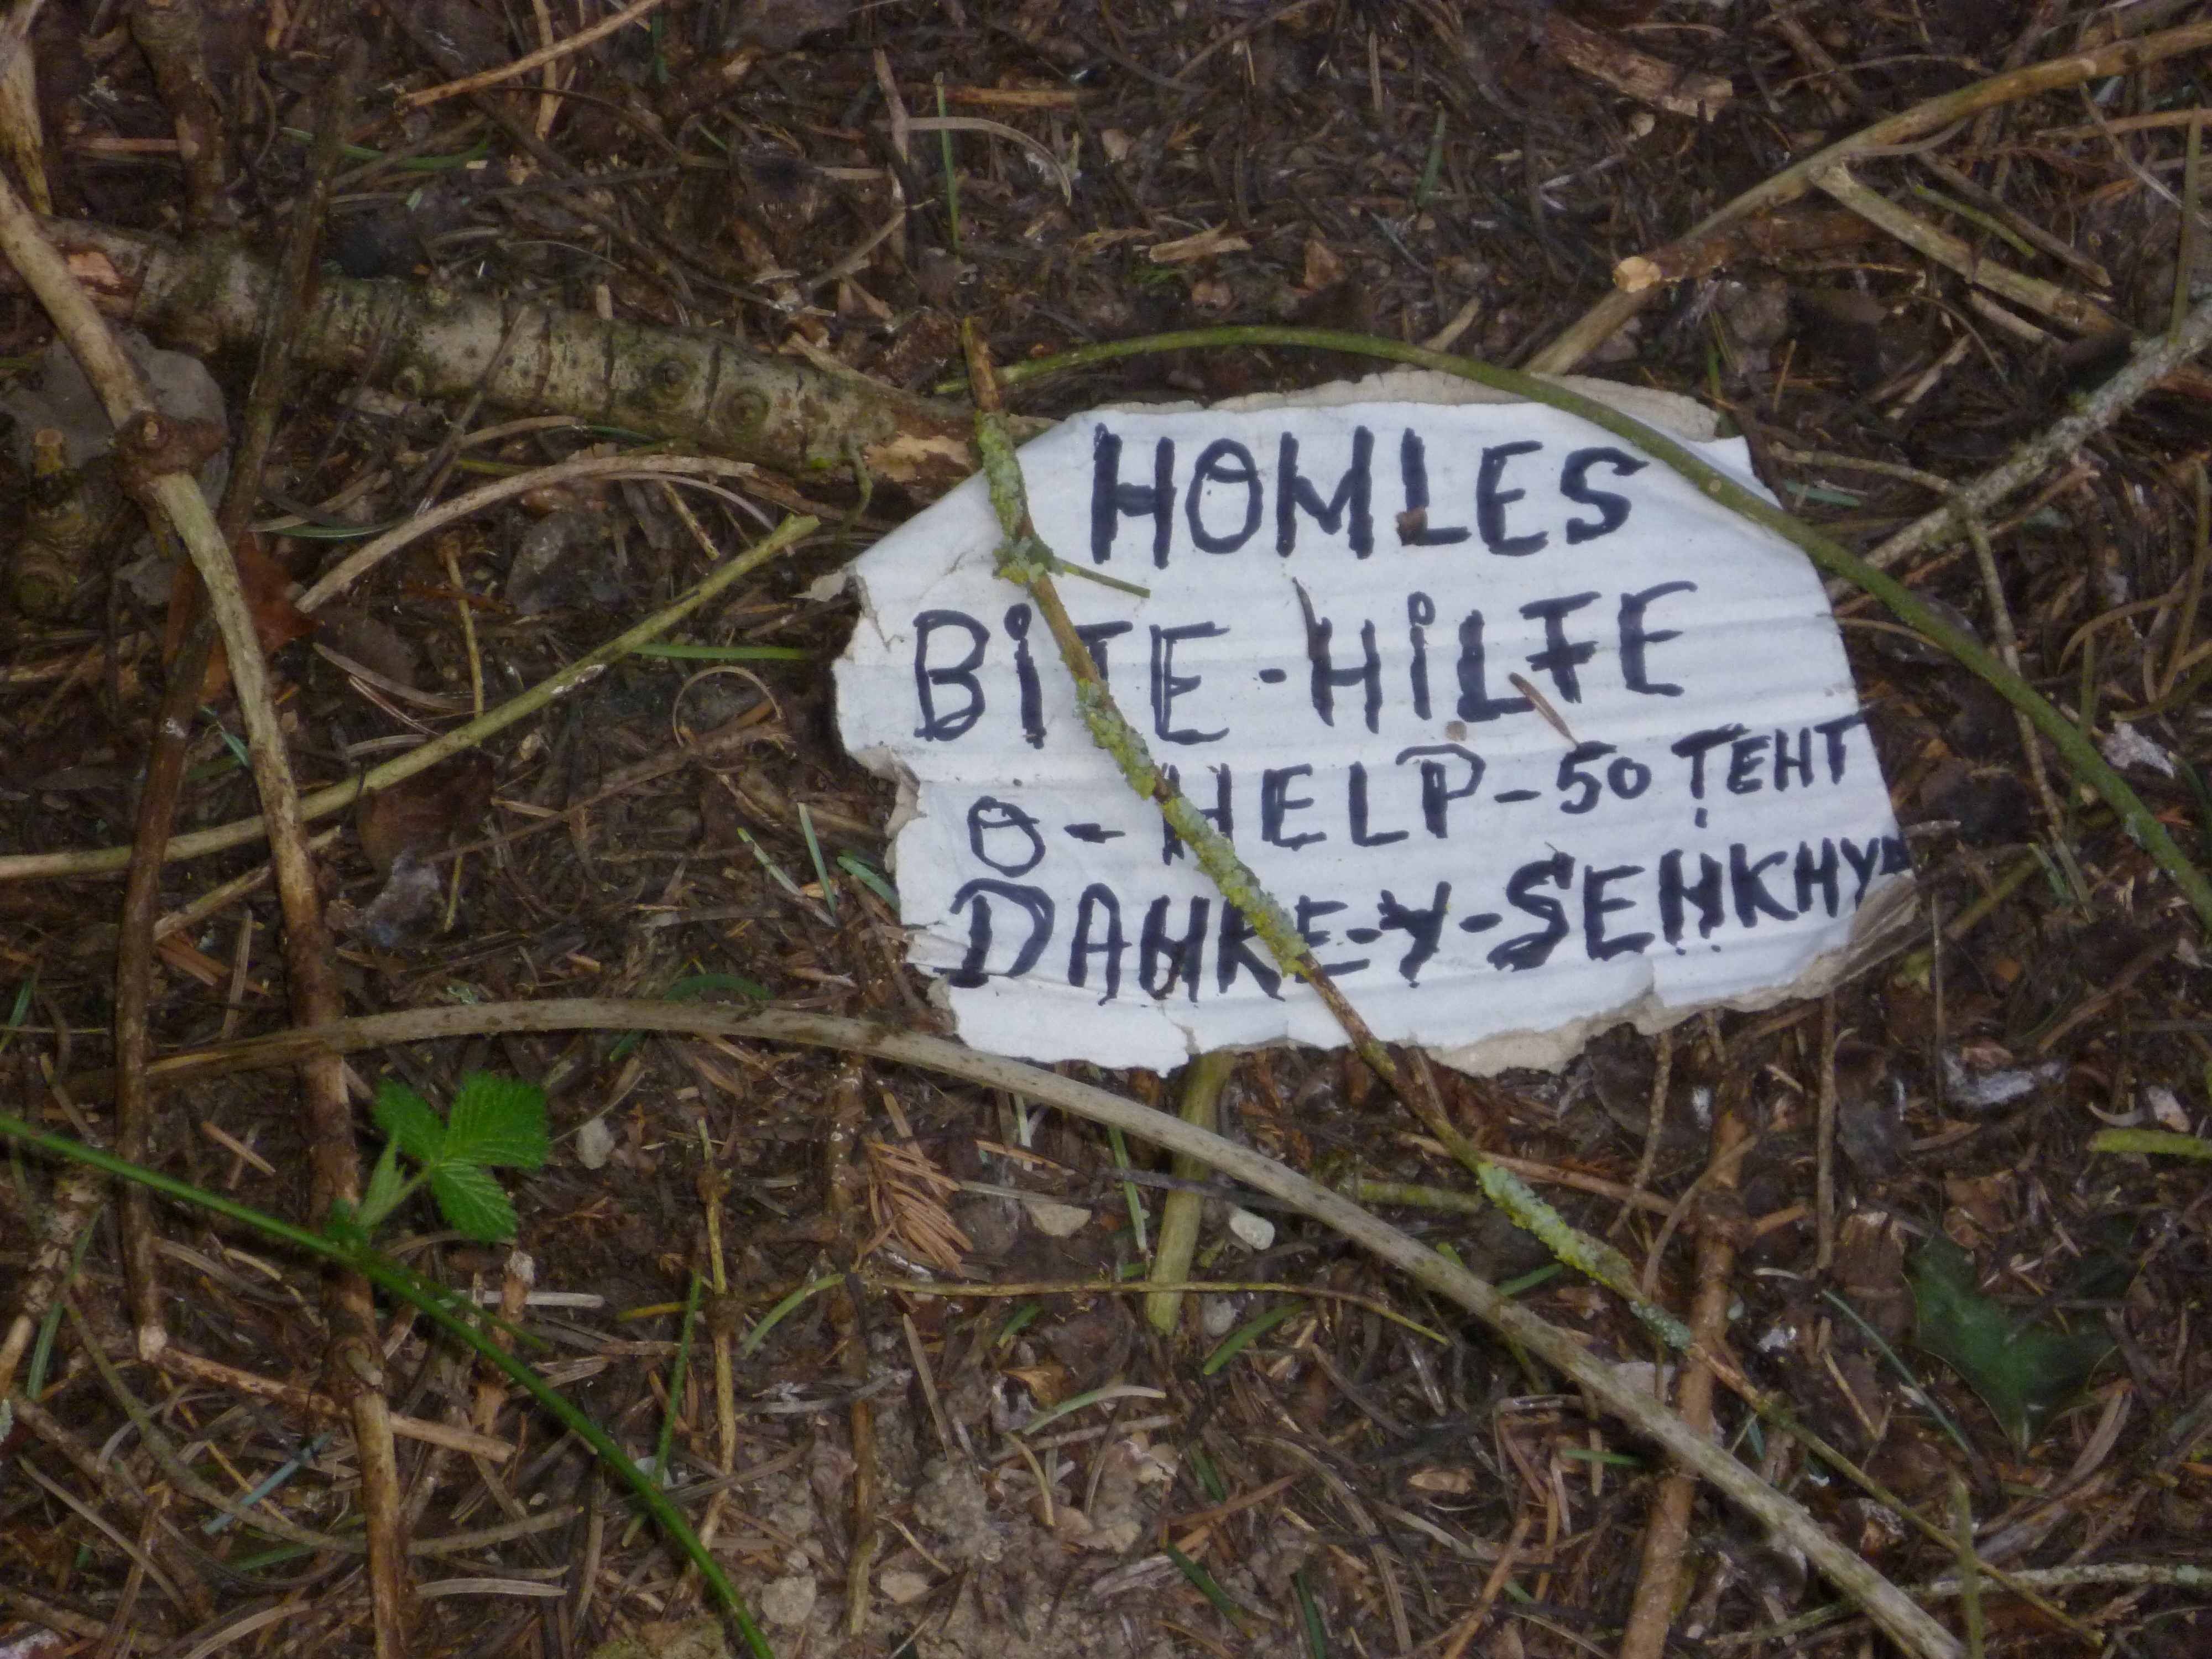 HOMLES
BiTE-HiLFE
O-HELP-50 TEHT
DAHKE-Y-SEHKHY